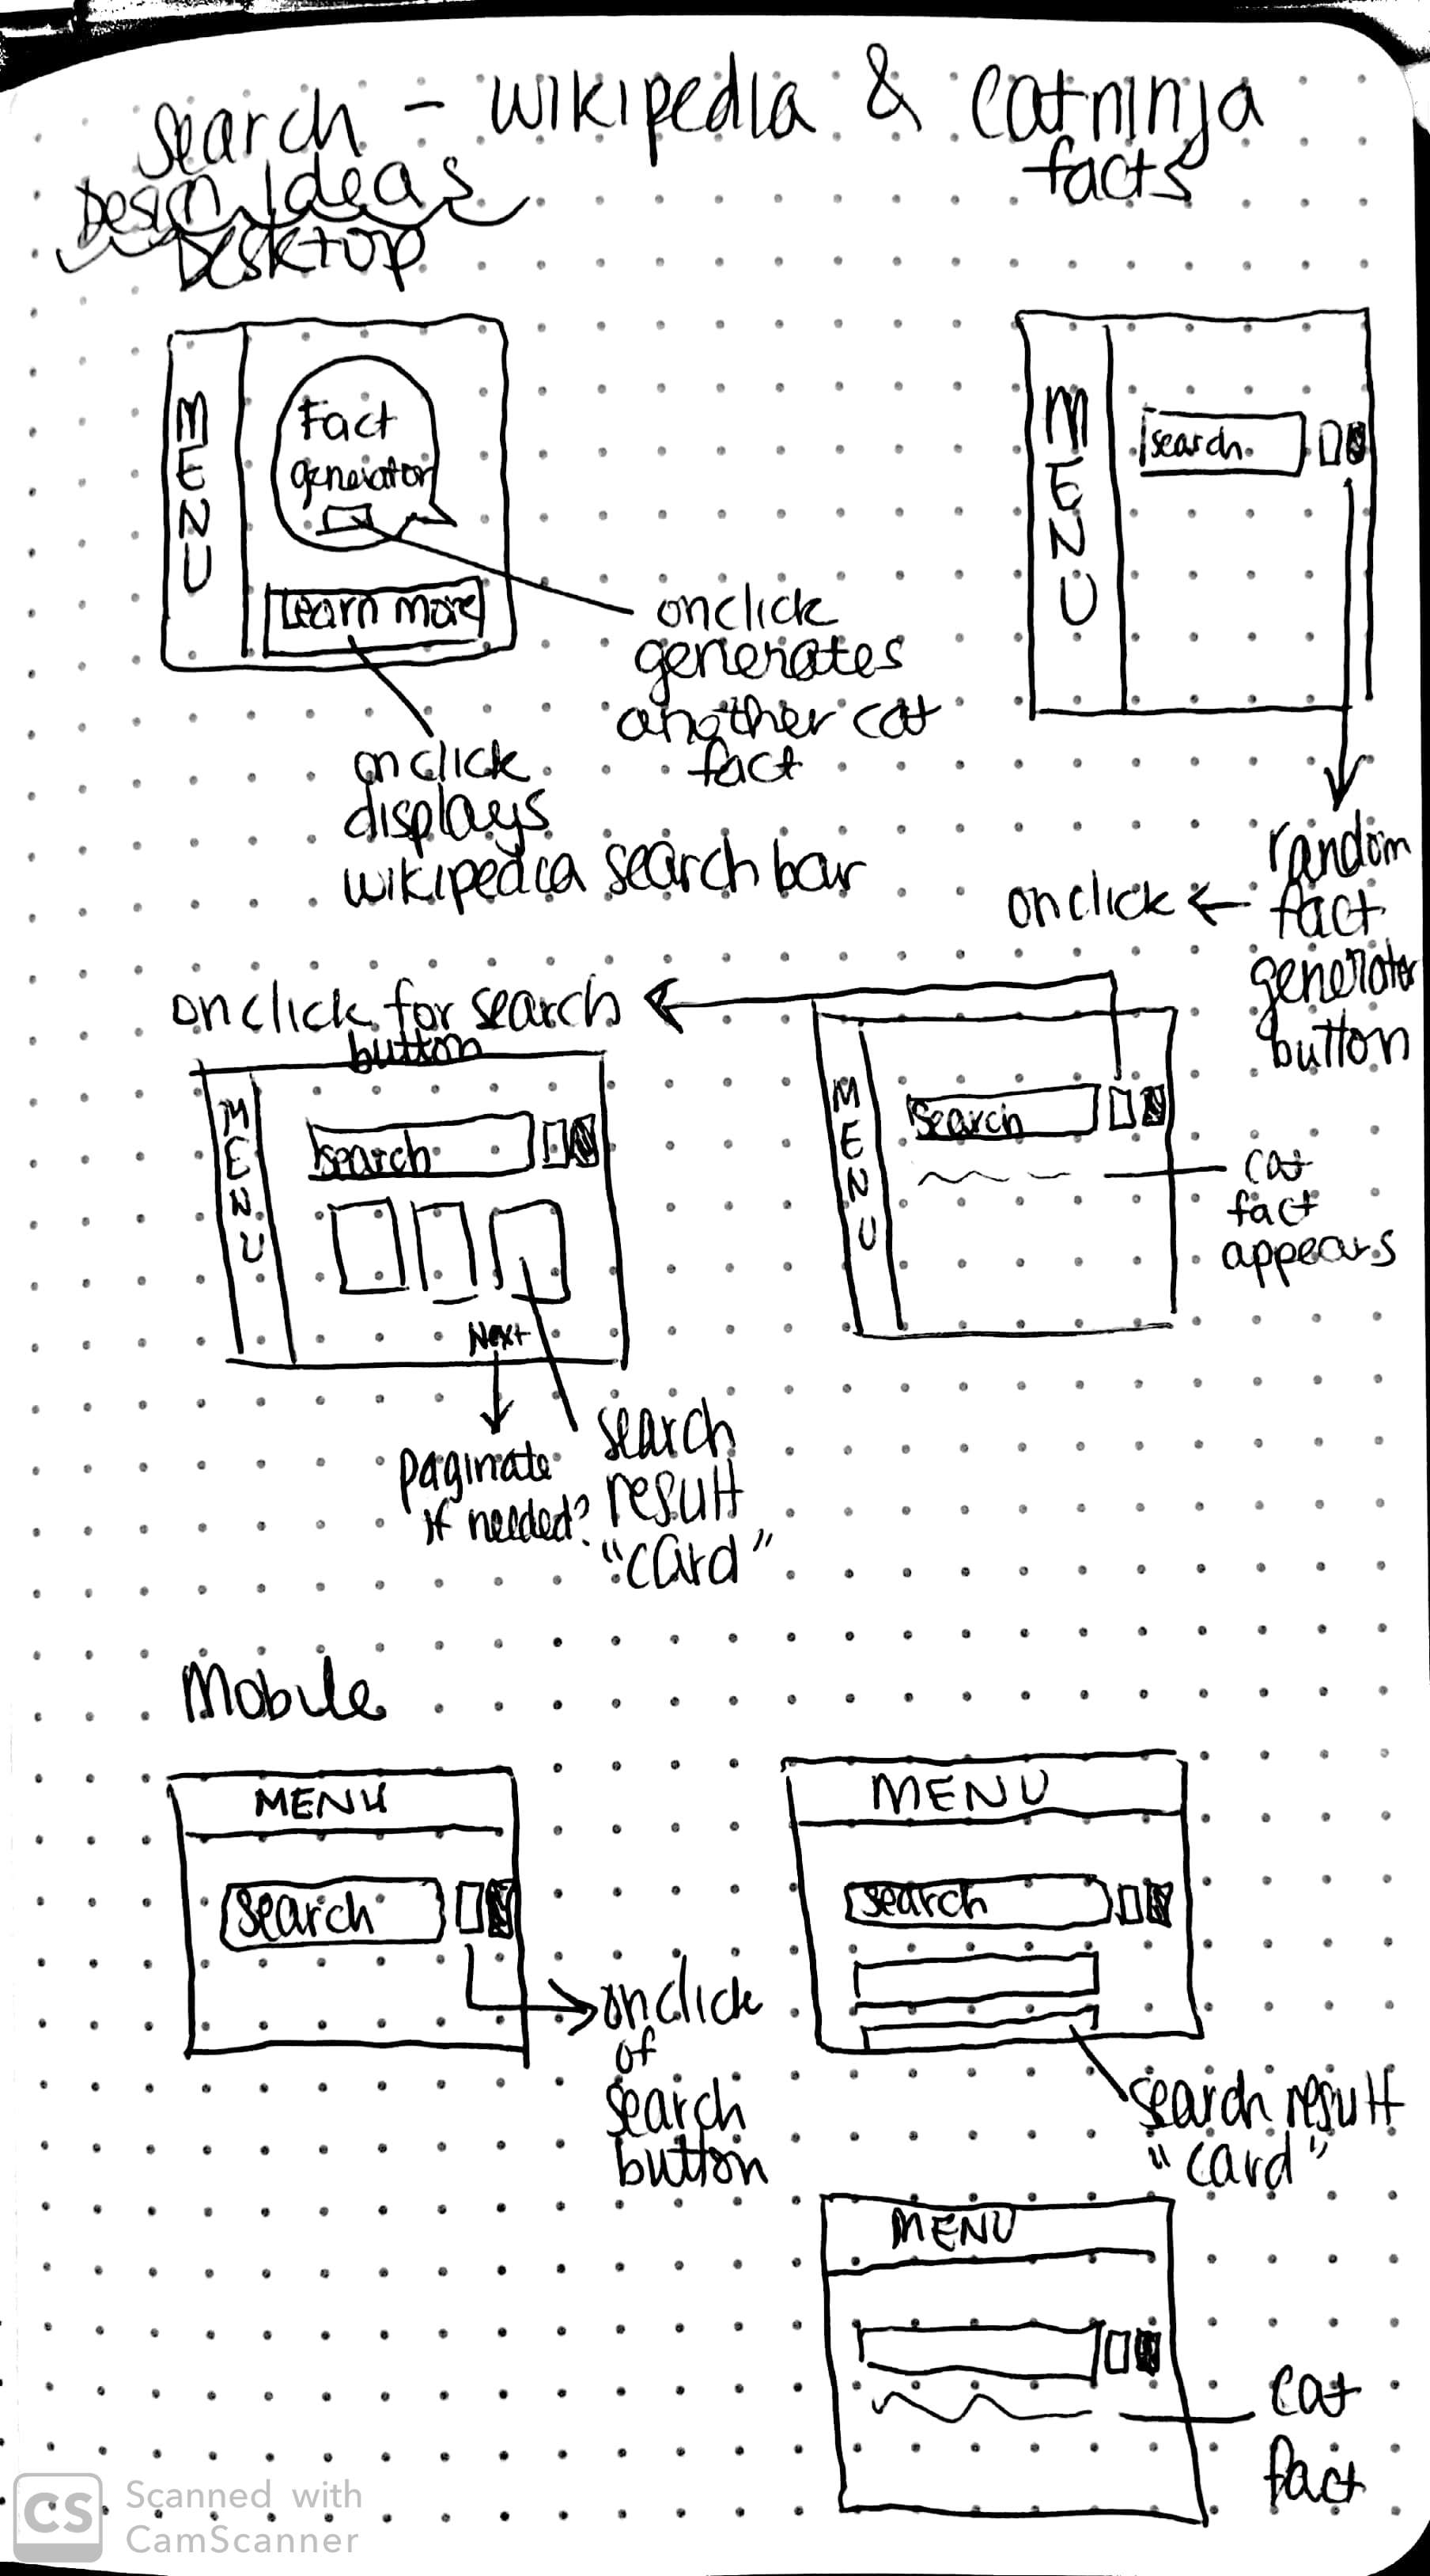 Search - Wikipedia & catninja
facts
Design Ideas
Desktop
MENU
Fact
generator
Learn more
onclick
generates
another cat
fact
onclick
displays
wikipedia search bar
MENU
search
random
fact
generator
button
onclick
onclick for search
button
MENU
search
Next
paginate
if needed?
search
result
"card"
MENU
Search
cat
fact
appears
Mobile
MENU
Search
onclick
of
search
button
MENU
search
search result
"card"
MENU
cat
fact
CS
Scanned with
CamScanner